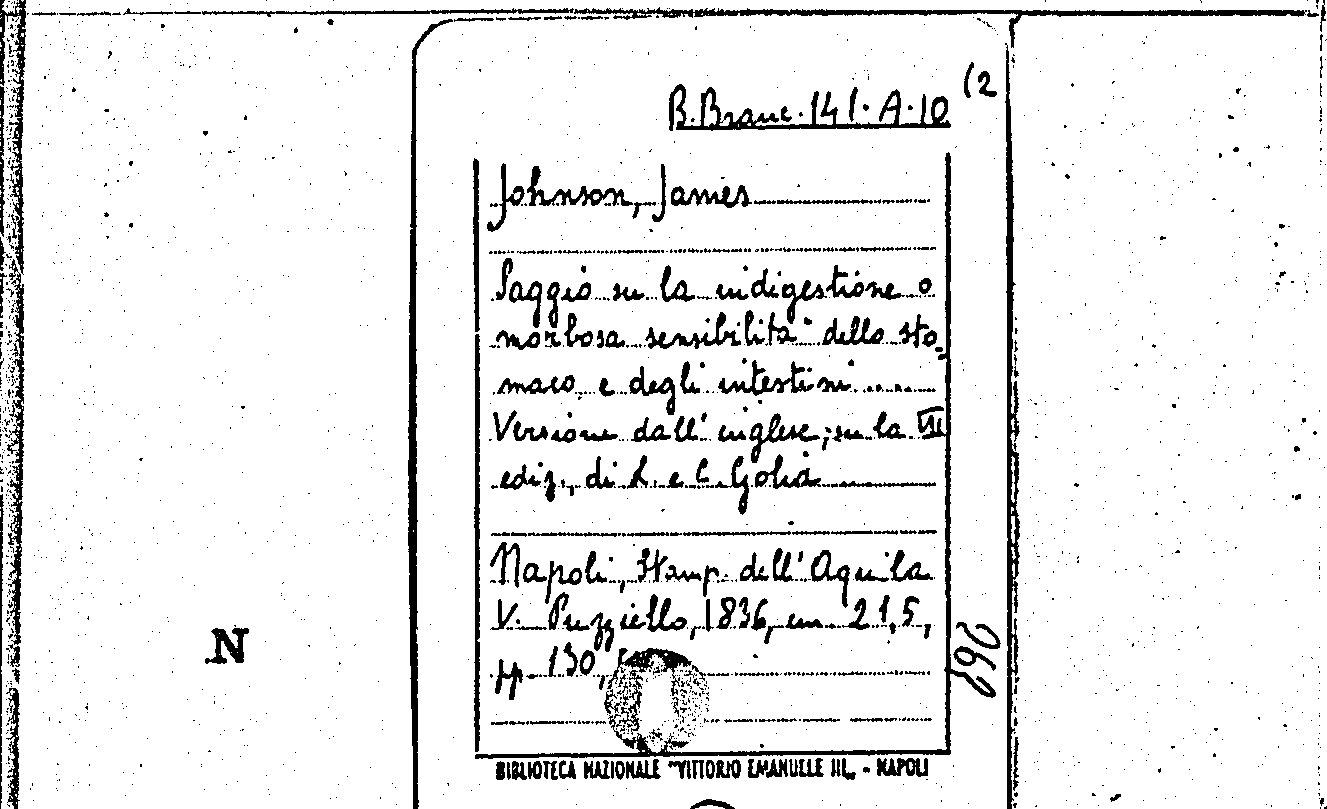 B. Branc. 141. A. 10 (2
Johnson, James
Saggio su la indigestione o
morbosa sensibilità dello sto=
maco e degli intestini .....
Versione dall' inglese, su la VII
ediz., di L. e C. Golia
Napoli, Stamp. dell' Aquila
V. Puzziello, 1836, cm. 21,5,
pp. 130,
N
BIBLIOTECA NAZIONALE "VITTORIO EMANUELE III„ - NAPOLI